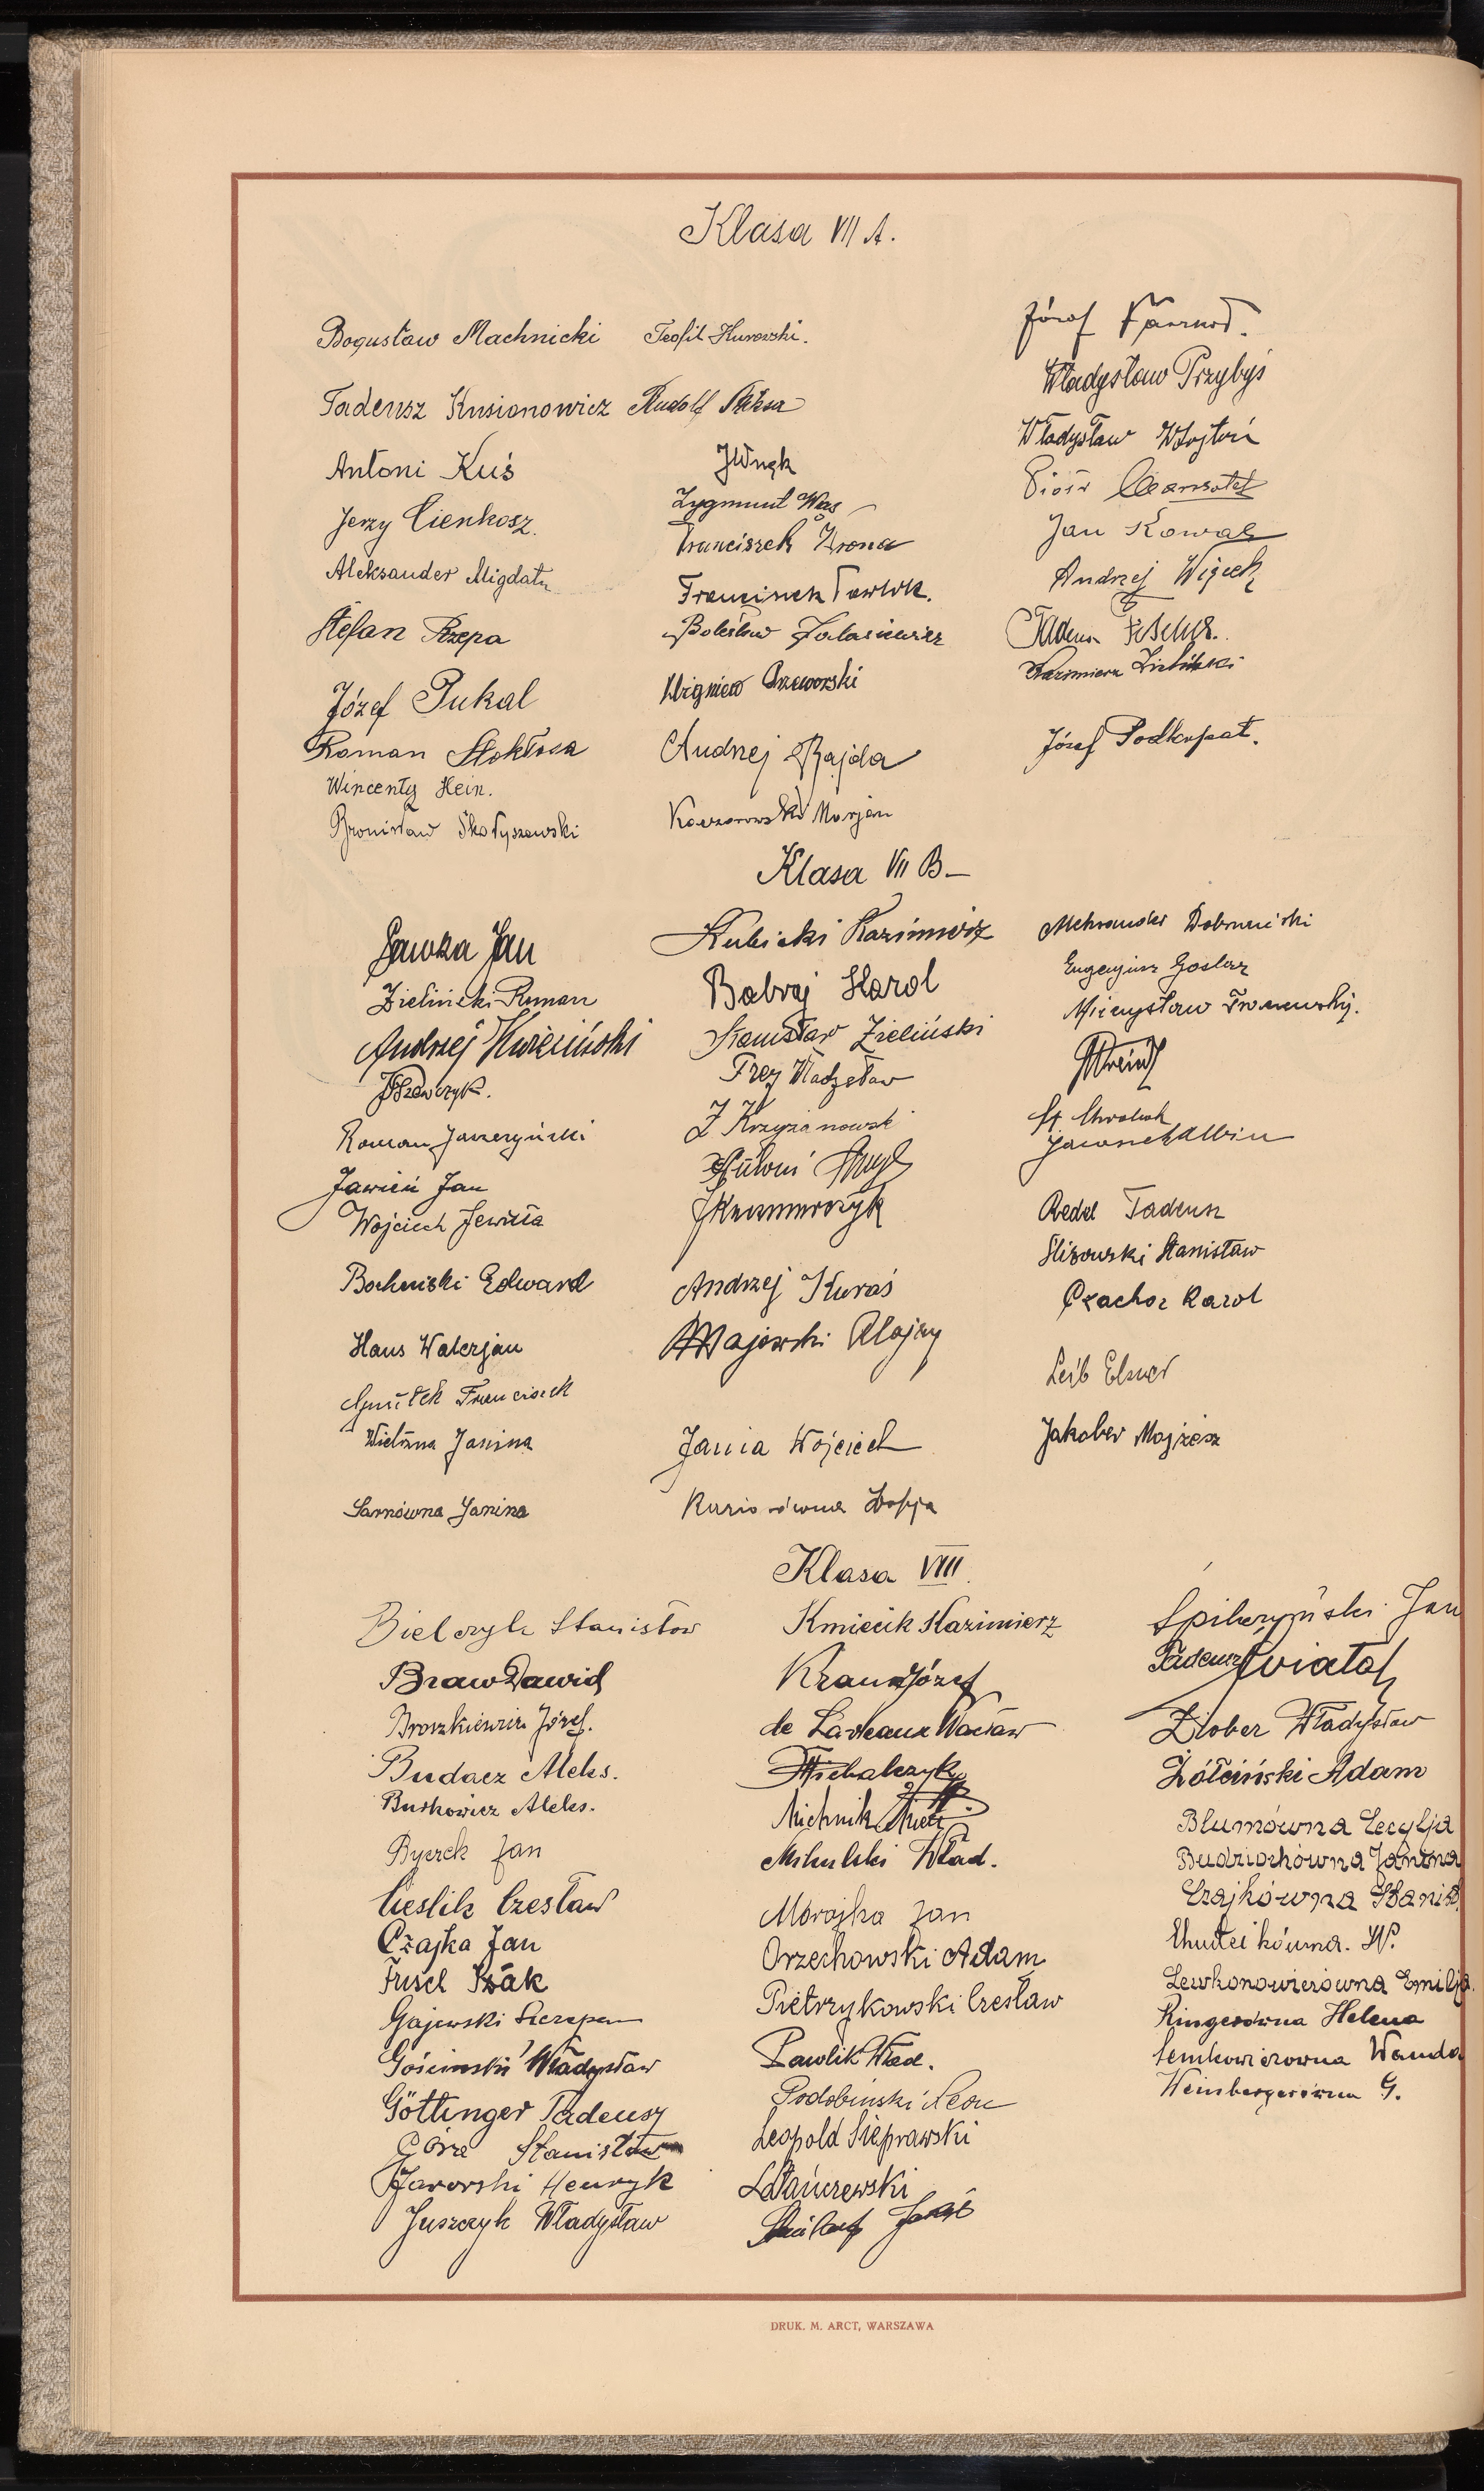 Klasa VII A.
Bogusław Machnicki
Tadeusz Kusionowicz
Antoni Kuś
Jerzy Cienkosz.
Aleksander Migdał
Stefan Rzepa
Józef Pukal
Roman Stokłosa
Wincenty Hein.
Bronisław Skołyszewski
Teofil Kurowski.
Rudolf
Zygmunt Wąs
Franciszek Wrona
Franciszek Pawlik.
Bolesław
Zbigniew Przeworski
Andrzej Bajda
Kaczorowski Marjan
Józef
Władysław Przybyś
Władysław Wojtoń
Piotr
Jan Kowal
Andrzej Więcek
Tadeusz
Kazimierz Zieliński
Józef Podkopał.
Klasa VII B
Gawża Jan
Zieliński Roman
Andrzej Kwieciński
JSzewczyk.
Roman Jaszczyński
Jawień Jan
Wojciech Jewuła
Bocheński Edward
Haus Walerjan
Franciszek
Janina
Sarnówna Janina
Kubicki Kazimierz
Babraj Karol
Stanisław Zieliński
Frey Władysław
Z Krzyżanowski
Andrzej Kuraś
Majewski Alojzy
Jania Wojciech
Zofja
Aleksander Dobrucki
Eugenjusz Goslar
Mieczysław
St. Chrobak
Albin
Redel Tadeusz
Śliżowski Stanisław
Czachor Karol
Leib Elsner
Jakober Mojżesz
Klasa VIII
Bielczyk Stanisław
Braw Dawid
Broszkiewicz Józef.
Budacz Aleks.
Butkowicz Aleks.
Byczek Jan
Cieślik Czesław
Czajka Jan
Fusel Izak
Gajewski Szczepan
Gościmski Władysław
Göttinger Tadeusz
Góra Stanisław
Jaworski Henryk
Juszczyk Władysław
Kmiecik Kazimierz
Kraus Józef
de Laveaux Wacław
Michalczyk
Michnik
Mikulski Wład.
Morajka Jan
Orzechowski Adam
Pietrzykowski Czesław
Pawlik Wład.
Podobiński Leon
Leopold Sieprawski
Stańczewski
Spilczyński Jan
Tadeusz Świątek
Złober Władysław
Żółciński Adam
Blumówna Cecylja
Budziochówna Janina
Czajkówna Stanisł
Chudzikówna. W.
Lewkonowiczówna Emilja.
Ringerówna Helena
Semkowiczówna Wanda
Weinbergerówna G.
DRUK. M. ARCT, WARSZAWA